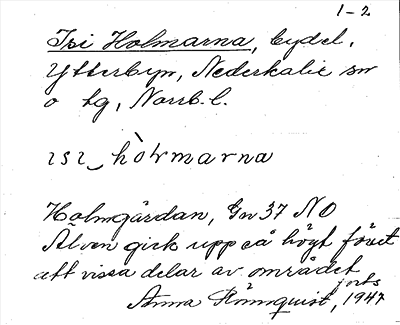 1-2
Isi Holmarna, bydel,
Ytterbyn, Nederkalix sn
o tg, Norrb. l.
ısı hòlmarna
Holmgärdan, Gev 37 NO
Älven gick upp så högt förut
att vissa delar av området
jorts
Anna Rönnquist, 1947